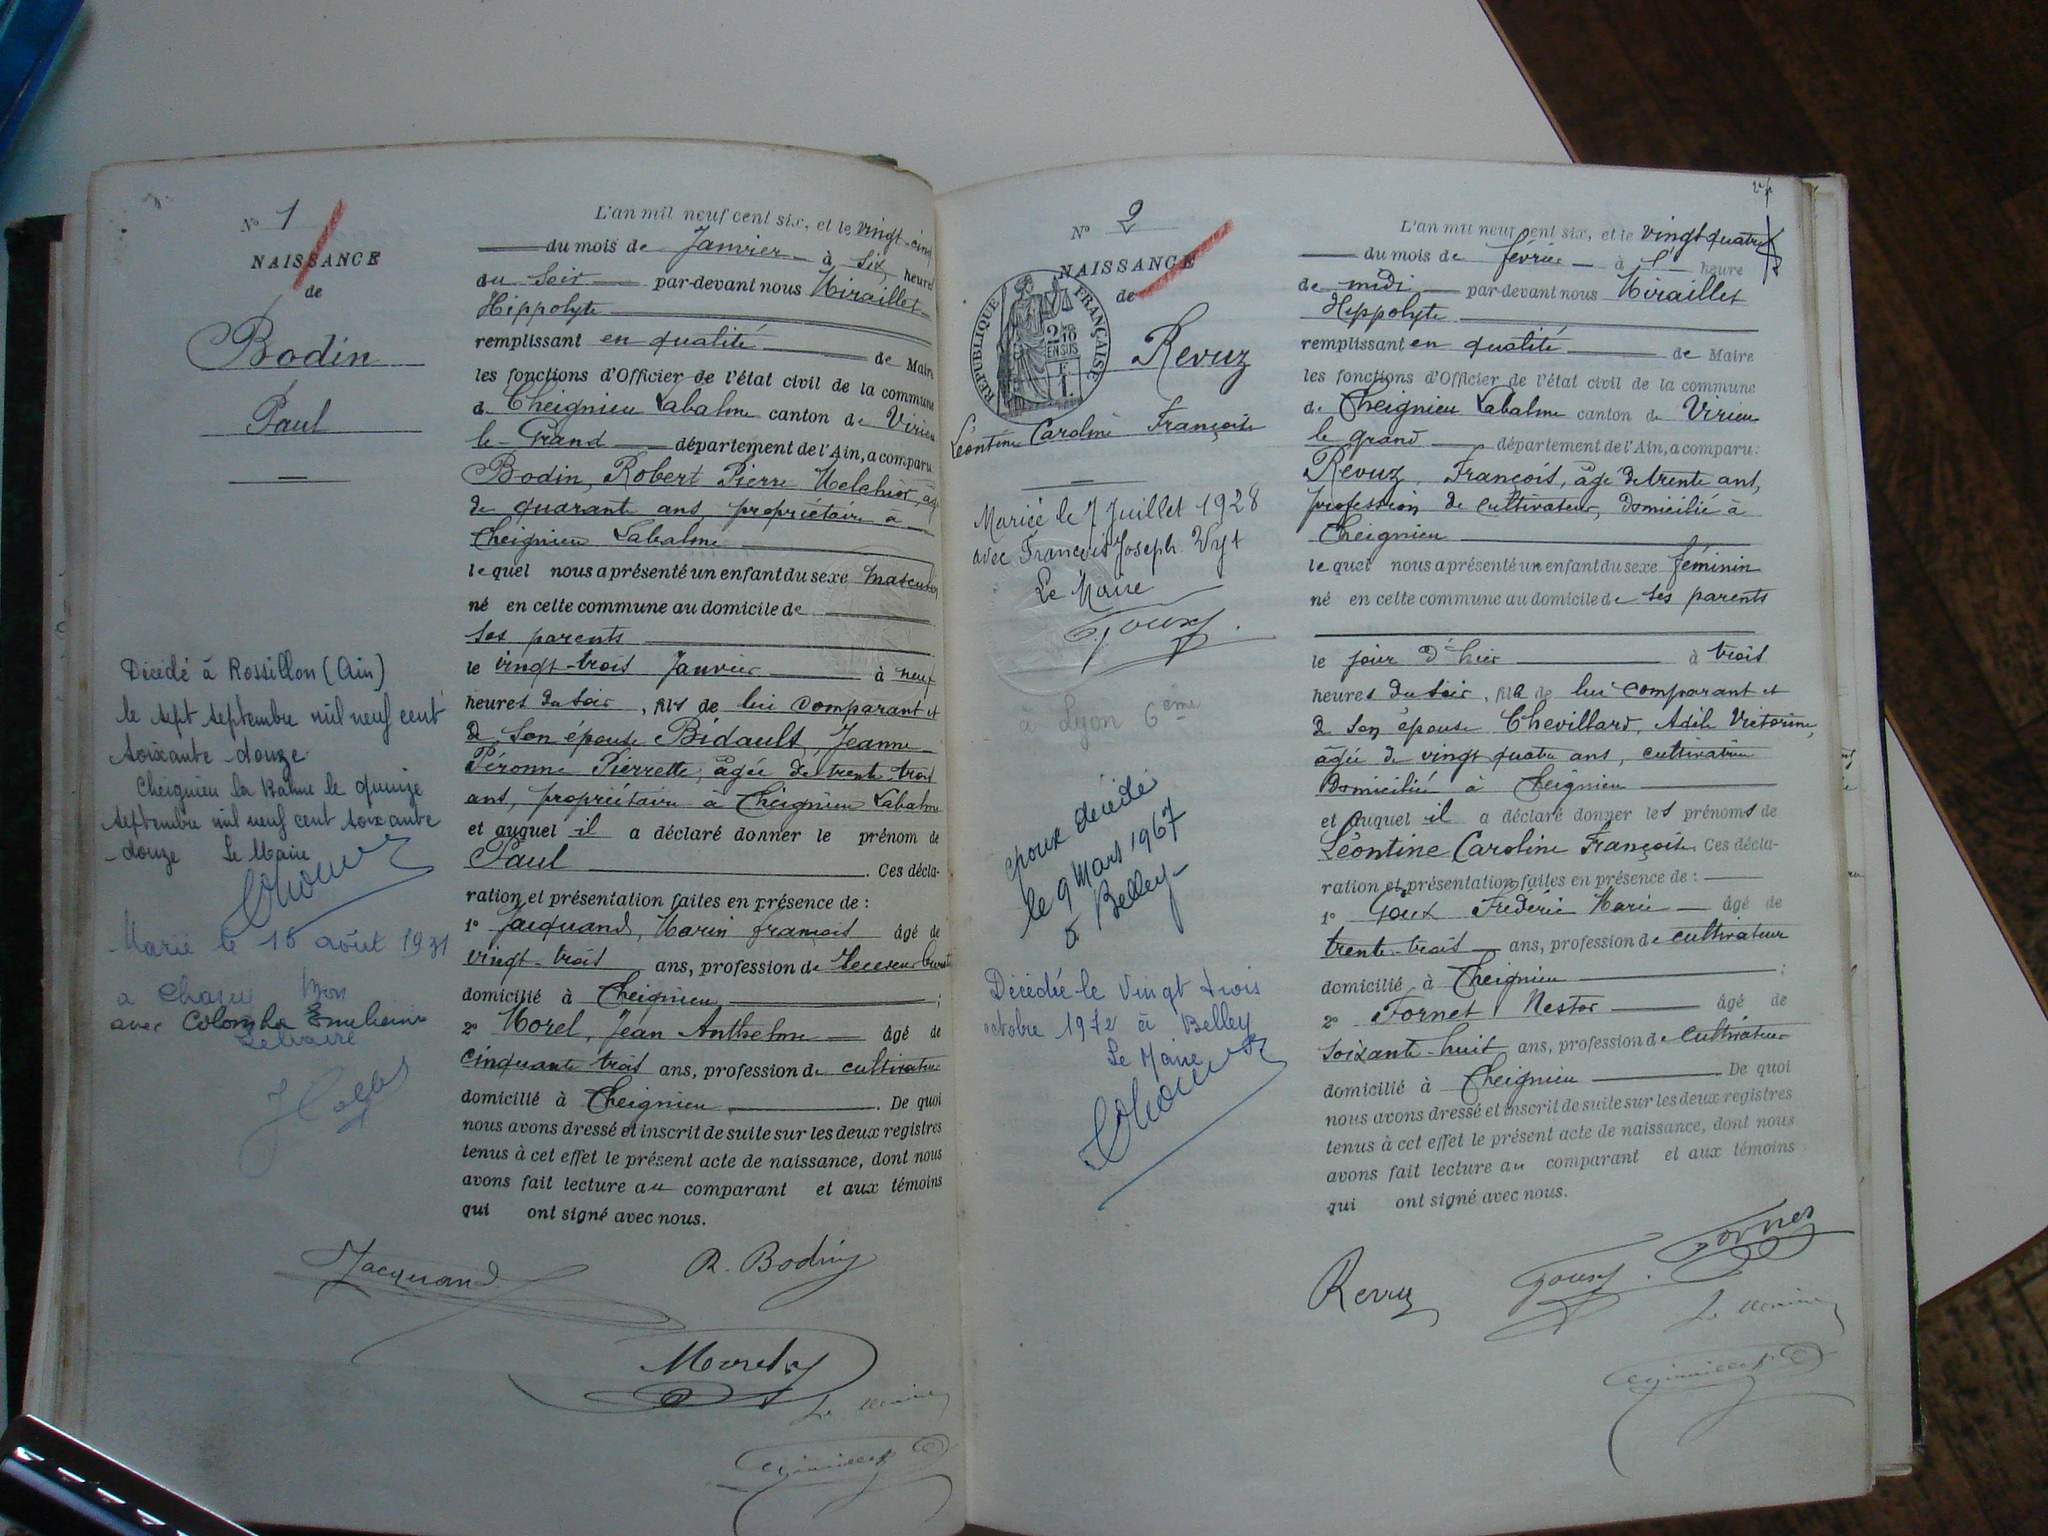 N° 1
NAISSANCE
de
Bodin
Paul
Décédé à Rossillon (Ain)
le sept septembre mil neuf cent
soixante-douze
Cheignieu la Balme le quinze
septembre mil neuf cent soixante
-douze Le Maire
Marié le 18 août 1931
à
avec Colomba
Le Maire
L'an mil neuf cent six, et le vingt-cinq
du mois de Janvier à six heures
du soir par-devant nous Miraillet
Hippolyte
remplissant en qualité de Maire
les fonctions d'Officier de l'état civil de la commune
de Cheignieu Labalme canton de Virieu
le-Grand département de l'Ain, a comparu:
Bodin, Robert Pierre Melchior, âgé
de quarante ans, propriétaire à
Cheignieu Labalme
lequel nous a présenté un enfant du sexe masculin
né en cette commune au domicile de
ses parents
le vingt-trois Janvier à neuf
heures du soir, fils de lui comparant et
de son épouse Bidault, Jeanne
Péronne Pierrette, âgée de trente trois
ans, propriétaire à Cheignieu Labalme
et auquel il a déclaré donner le prénom de
Paul. Ces décla-
ration et présentation faites en présence de :
1° Jacquand, Marin François âgé de
vingt-trois ans, profession de
domicilié à Cheignieu ;
2° Morel, Jean Anthelme âgé de
cinquante trois ans, profession de cultivateur
domicilié à Cheignieu. De quoi
nous avons dressé et inscrit de suite sur les deux registres
tenus à cet effet le présent acte de naissance, dont nous
avons fait lecture au comparant et aux témoins
qui ont signé avec nous.
Jacquand R. Bodin
Morel
Le Maire
Miraillet
N° 2
NAISSANCE
de
RÉPUBLIQUE FRANÇAISE
2/10
EN SUS
1 F.
Revuz
Léontine Caroline Françoise
Mariée le 7 Juillet 1928
avec François Joseph Vyt
Le Maire
Goux
à Lyon 6ème
époux décédé
le 9 Mars 1967
à Belley
Décédée le vingt trois
octobre 1972 à Belley
Le Maire
L'an mil neuf cent six, et le vingt quatre
du mois de février à 1 heure
de midi par-devant nous Miraillet
Hippolyte
remplissant en qualité de Maire
les fonctions d'Officier de l'état civil de la commune
de Cheignieu Labalme canton de Virieu
le grand département de l'Ain, a comparu:
Revuz, François, âgé de trente ans,
profession de cultivateur, domicilié à
Cheignieu
lequel nous a présenté un enfant du sexe féminin
né en cette commune au domicile de ses parents
le jour d'hier à trois
heures du soir, fille de lui comparant et
de son épouse Chevillard, Adèle Victorine,
âgée de vingt quatre ans, cultivatrice
domiciliée à Cheignieu
et auquel il a déclaré donner les prénoms de
Léontine Caroline Françoise. Ces décla-
ration et présentation faites en présence de :
1° Goux Frédéric Marie âgé de
trente-trois ans, profession de cultivateur
domicilié à Cheignieu ;
2° Fornet Nestor âgé de
soixante-huit ans, profession de cultivateur
domicilié à Cheignieu De quoi
nous avons dressé et inscrit de suite sur les deux registres
tenus à cet effet le présent acte de naissance, dont nous
avons fait lecture au comparant et aux témoins
qui ont signé avec nous.
Revuz Goux Fornet
Le Maire
Miraillet